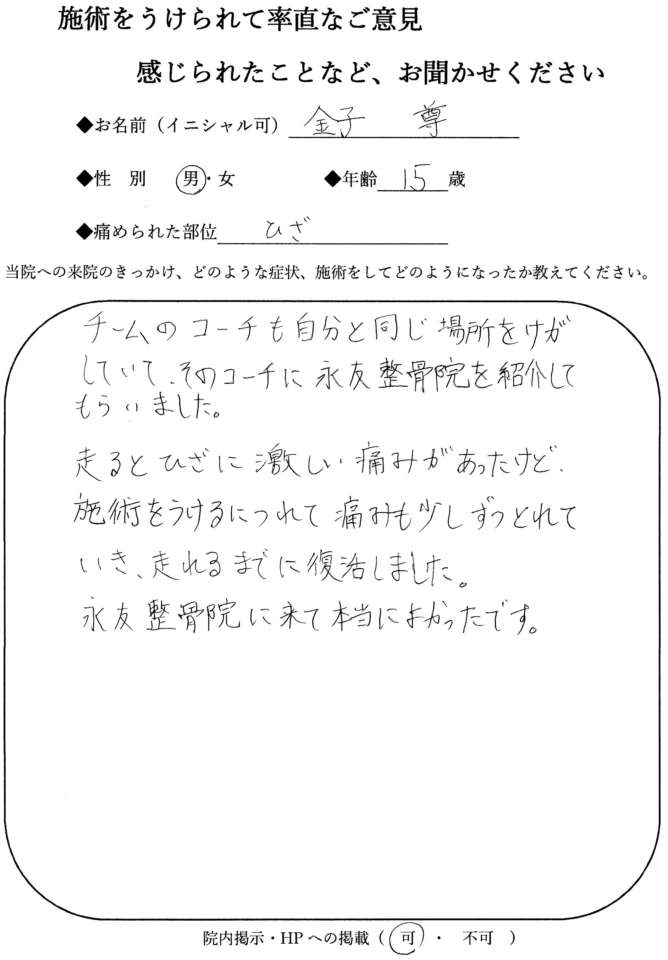 施術をうけられて率直なご意見
感じられたことなど、お聞かせください
◆お名前（イニシャル可） 金子 尊
◆性 別 男・女 ◆年齢 15 歳
◆痛められた部位 ひざ
当院への来院のきっかけ、どのような症状、施術をしてどのようになったか教えてください。
チームのコーチも自分と同じ場所をけが
していて、そのコーチに永友整骨院を紹介して
もらいました。
走るとひざに激しい痛みがあったけど、
施術をうけるにつれて痛みも少しずつとれて
いき、走れるまでに復活しました。
永友整骨院に来て本当によかったです。
院内掲示・HPへの掲載（ 可 ・ 不可 ）